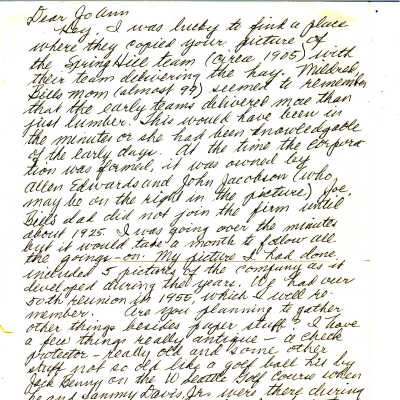 Dear JoAnn
Hey, I was lucky to find a place
where they copied your picture of
the Spring Hill team (circa 1905) with
their team delivering the hay. Mildred,
Bills mom (almost 95) seemed to remember
that the early teams delivered more than
just lumber. This would have been in
the minutes or she had been knowledgable
of the early days. At the time the corpora
tion was formed, it was owned by
Allen Edwards and John Jacobson (who
may be on the right in the picture) Joe,
Bills dad did not join the firm until
about 1925. I was going over the minutes
but it would take a month to follow all
the goings-on. My picture I had done
includes 5 pictures of the company as it
developed during the years. We had our
50th reunion in 1955, which I well re-
member. Are you planning to gather
other things besides paper stuff? I have
a few things really antique - a check
protector - really old and some other
stuff not so old like a golf ball hit by
Jack Benny on the 10 Golf Course when
he and Sammy Davis, Jr. were there during